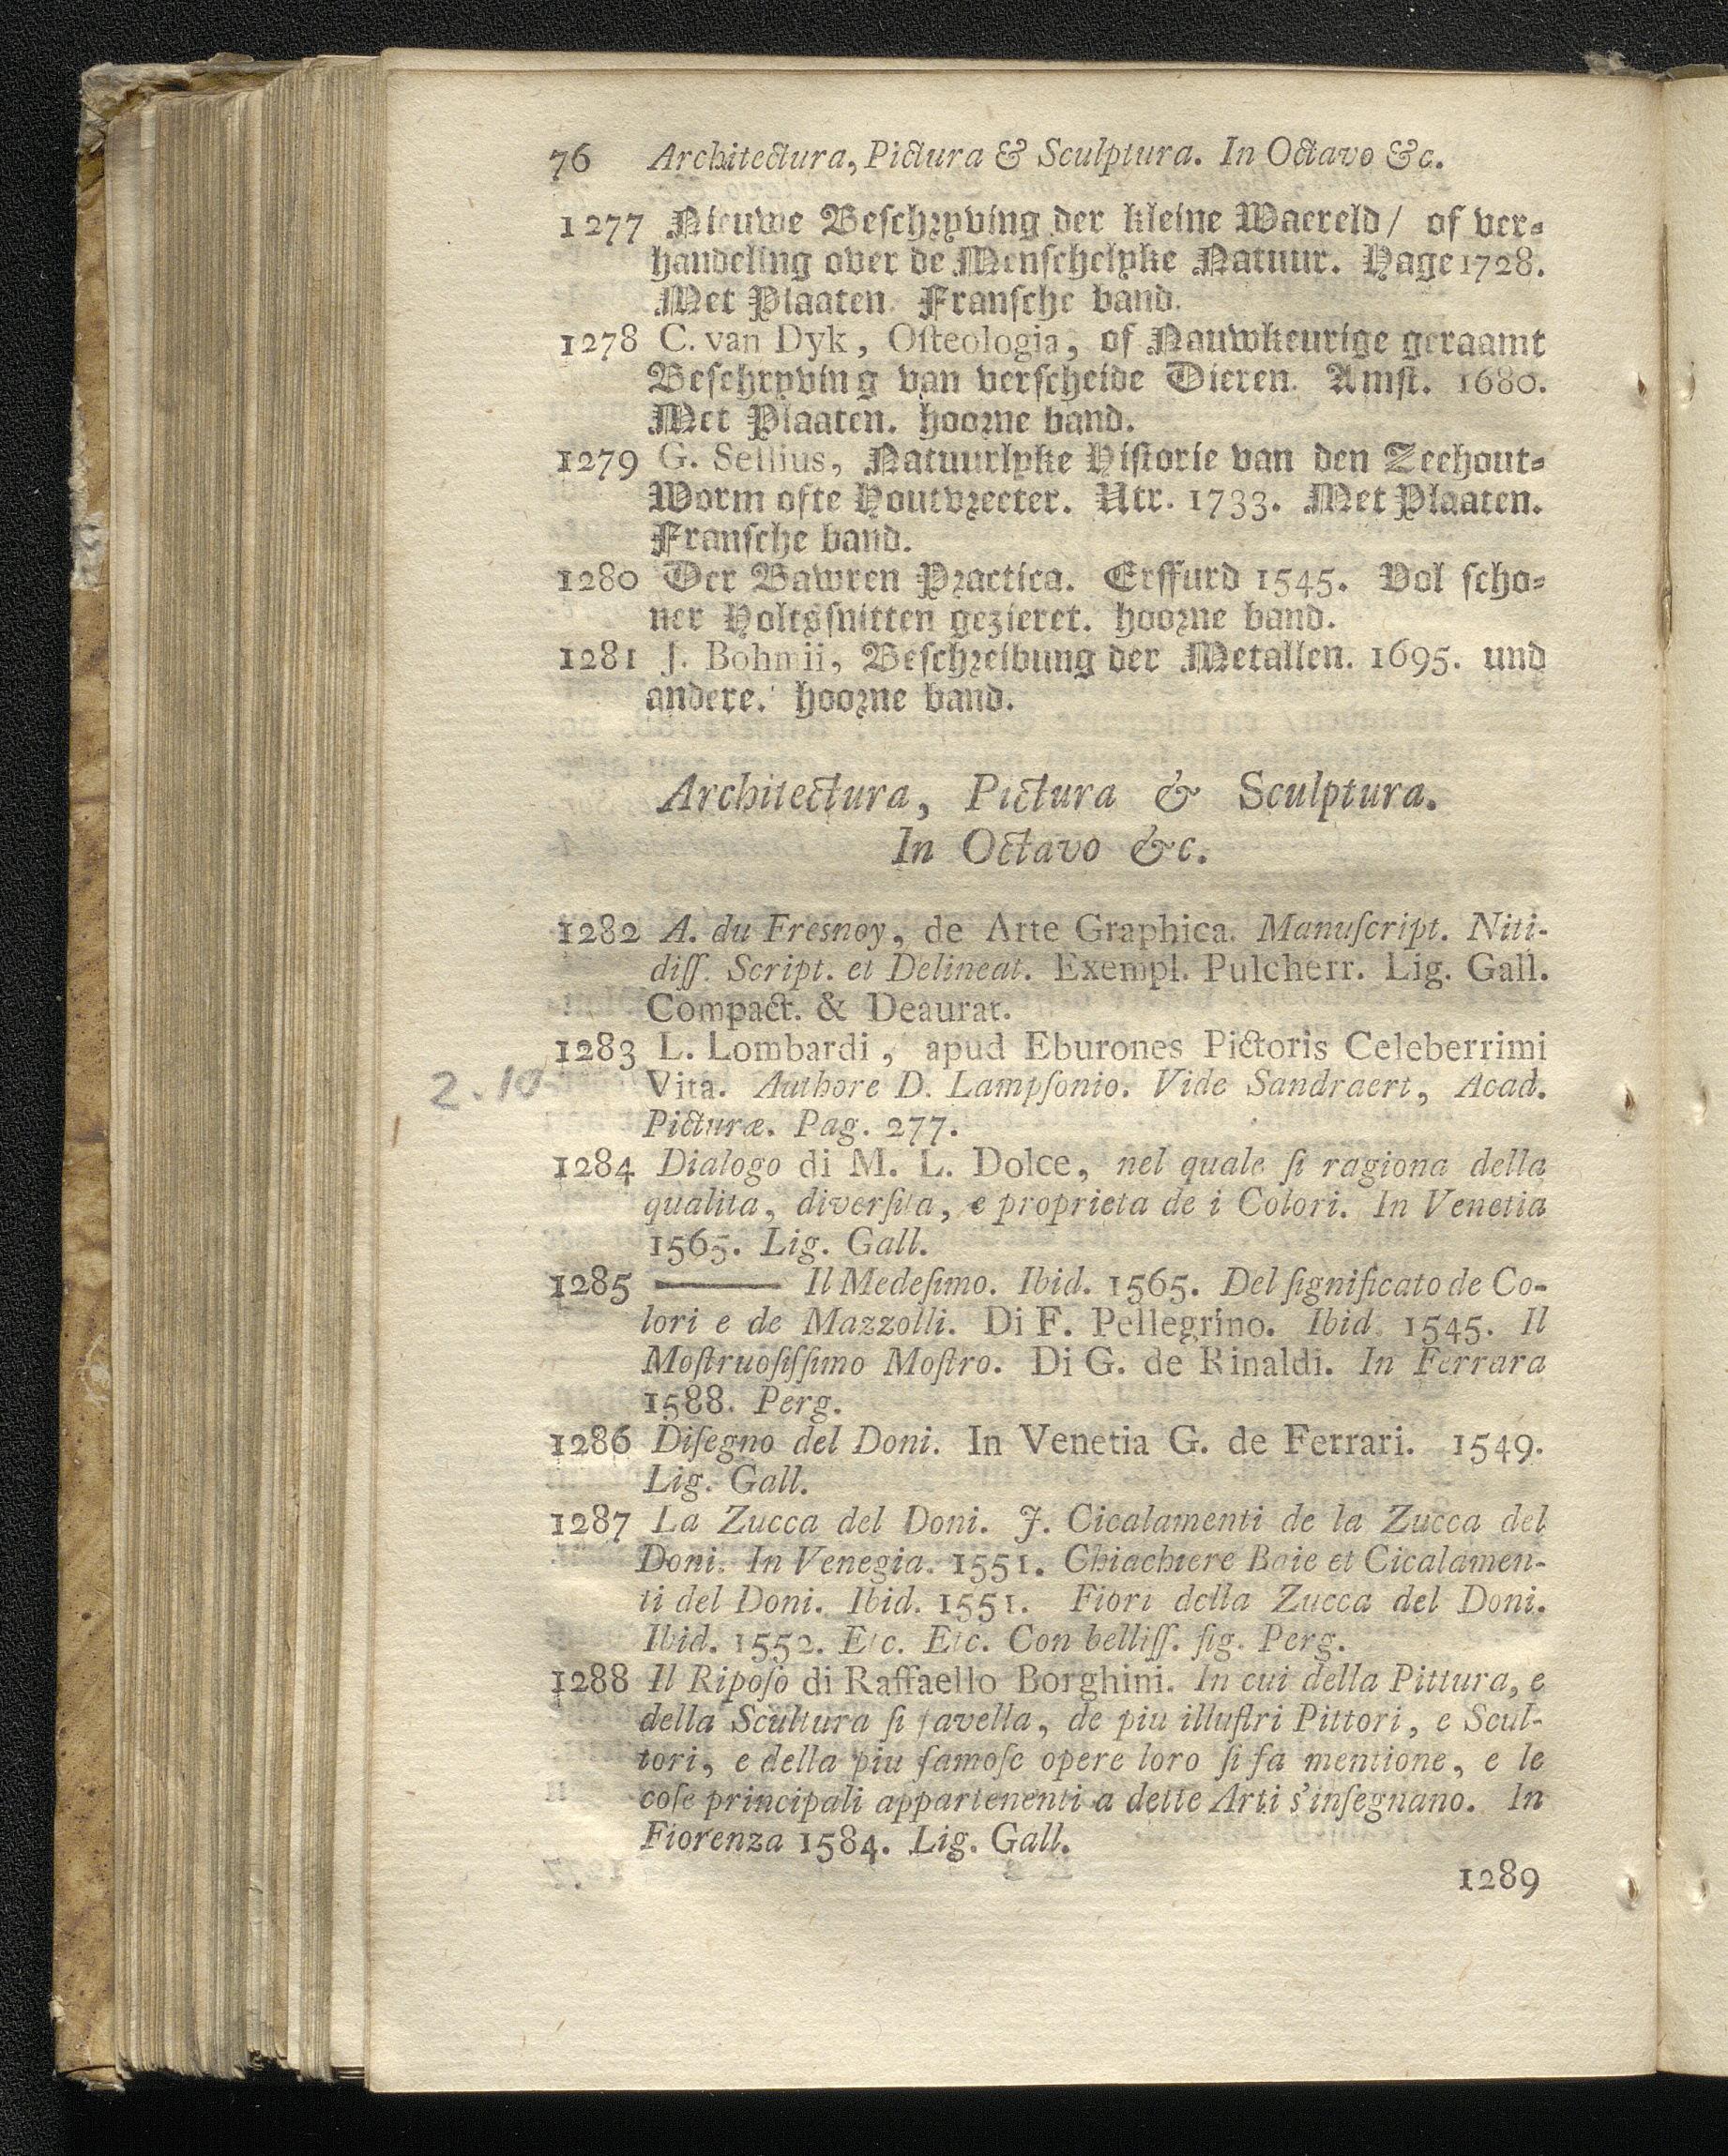 76 Architectura, Pictura & Sculptura. In Octavo &c.
1277 Nieuwe Beschryving der kleine Waereld / of ver-
handeling over de Menschelyke Natuur. Hage 1728.
Met Plaaten. Fransche band.
1278 C. van Dyk, Oſteologia, of Nauwkeurige geraamt
Beschryving van verscheide Dieren. Amst. 1680.
Met Plaaten. hoorne band.
1279 G. Sellius, Natuurlyke Historie van den Zeehout-
Worm ofte Houtvreeter. Utr. 1733. Met Plaaten.
Fransche band.
1280 Der Bawren Practica. Erffurd 1545. Vol scho-
ner Holtzsnitten gezieret. hoorne band.
1281 J. Bohmii, Beschreibung der Metallen. 1695. und
andere. hoorne band.
Architectura, Pictura & Sculptura.
In Octavo &c.
1282 A. du Fresnoy, de Arte Graphica. Manuſcript. Niti-
diſſ. Script. et Delineat. Exempl. Pulcherr. Lig. Gall.
Compact. & Deaurat.
1283 L. Lombardi, apud Eburones Pictoris Celeberrimi
2.10 Vita. Authore D. Lampſonio. Vide Sandraert, Acad.
Picturæ. Pag. 277.
1284 Dialogo di M. L. Dolce, nel quale ſi ragiona della
qualita, diverſita, e proprieta de i Colori. In Venetia
1565. Lig. Gall.
1285 ——— Il Medeſimo. Ibid. 1565. Del ſignificato de Co-
lori e de Mazzolli. Di F. Pellegrino. Ibid. 1545. Il
Moſtruoſiſſimo Moſtro. Di G. de Rinaldi. In Ferrara
1588. Perg.
1286 Diſegno del Doni. In Venetia G. de Ferrari. 1549.
Lig. Gall.
1287 La Zucca del Doni. J. Cicalamenti de la Zucca del
Doni. In Venegia. 1551. Chiachiere Baie et Cicalamen-
ti del Doni. Ibid. 1551. Fiori della Zucca del Doni.
Ibid. 1552. Etc. Etc. Con belliſſ. fig. Perg.
1288 Il Ripoſo di Raffaello Borghini. In cui della Pittura, e
della Scultura ſi favella, de piu illuſtri Pittori, e Scul-
tori, e della piu famoſe opere loro ſi fa mentione, e le
coſe principali appartenenti a dette Arti s'inſegnano. In
Fiorenza 1584. Lig. Gall.
1289